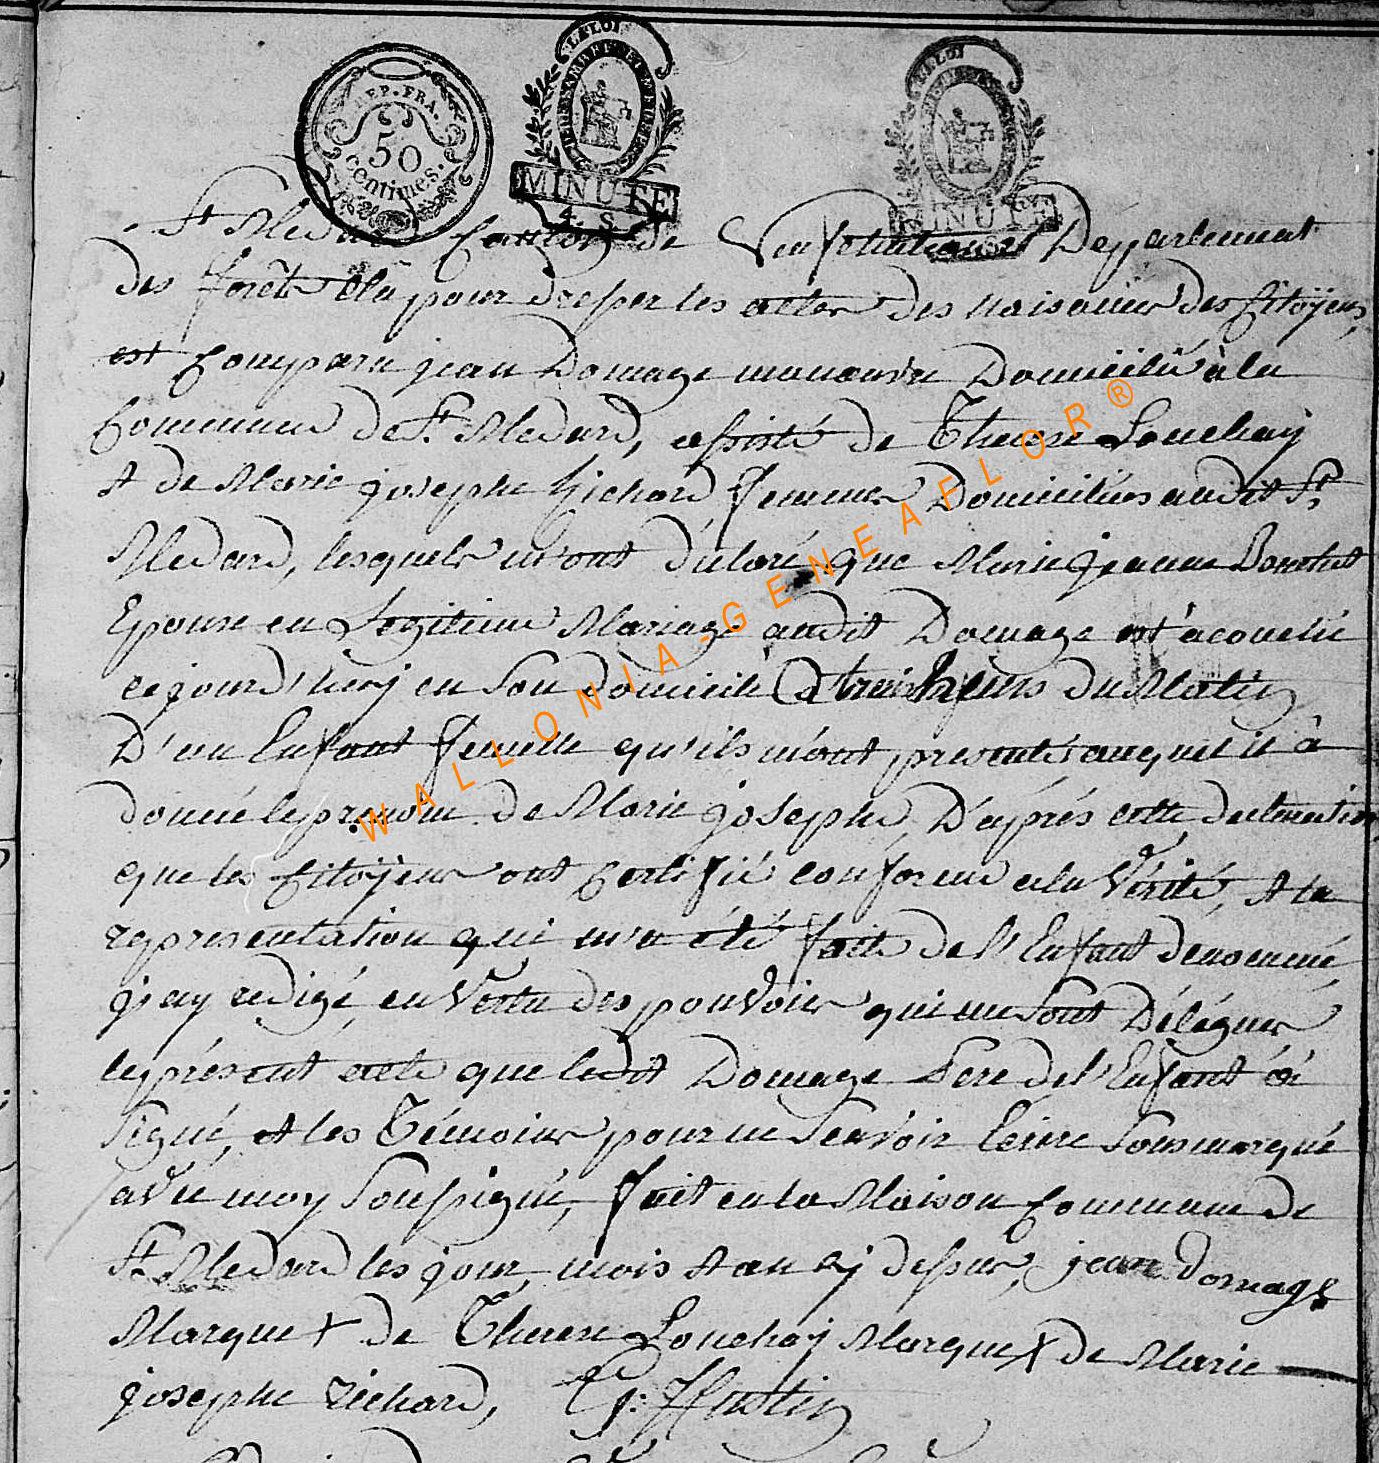 LA LOI
LA LOI
REP. FRA.
50
centimes.
MINUTE
4 S
MINUTE
St Medard Canton de Neufchateau Département
des forêts Elu pour dresser les actes des naisances des Citoÿens,
est Comparu jean Domage manœuvre Domicilié à la
Commune de St Medard, assisté de Therese Louchaÿ
et de Marie josephe Richard femmes Domiciliées audit St
Medard, lesquels m'ont déclaré que Marie jeanne
Epouse en Legitime Mariage audit Domage est acouché
ce jourd'huy en son domicile a trois heures du Matin
D'un Enfant femelle qu'ils m'ont presenté auquel il à
donné le prenom de Marie josephe, D'après cette declaration
que les Citoÿens ont Certifié conforme a la Vérité, et la
représentation qui m'a été faite de l'Enfant denommé,
j'ay redigé, en Vertu des pouvoirs qui me sont Délégués
le présent acte que ledit Domage Pere de l'Enfant à
signé, et les Témoins pour ne sçavoir Ecrire sousmarqué
avec moy soussigné, fait en la Maison Commune de
St Medard les jour, mois et an dessus, jean Domage
Marque + de Therese Louchaÿ Marque + de Marie
josephe Richard, Hustin
WALLONIA-GENEAFLOR®